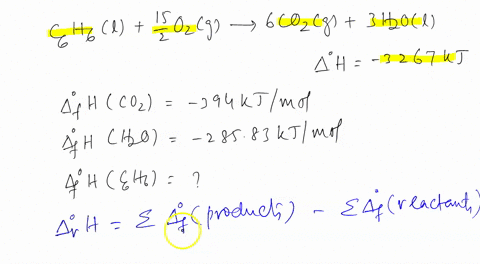 C6H6(l) + 15/2 O2(g) → 6CO2(g) + 3H2O(l)
Δ°H = -3267 kJ
Δ°fH (CO2) = -394 kJ/mol
Δ°fH (H2O) = -285.83 kJ/mol
Δ°fH (C6H6) = ?
Δ°rH = Σ Δ°f (products) - Σ Δ°f (reactants)